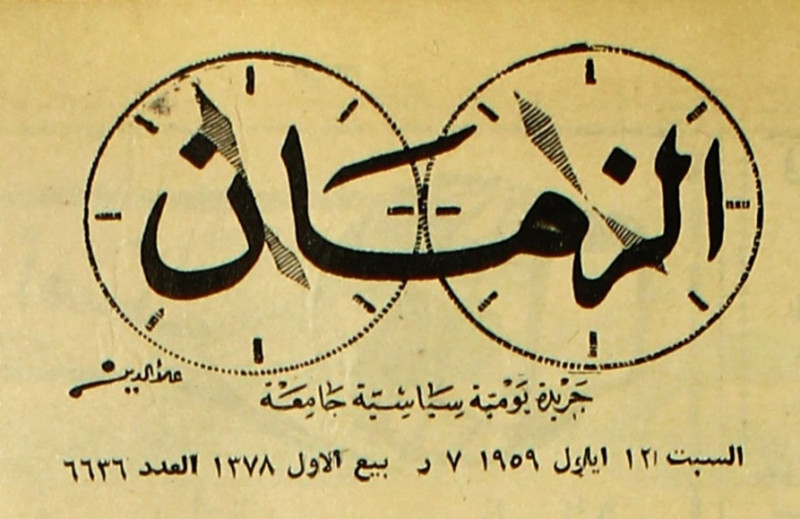 الزمان
علاء الدين
جريدة يومية سياسية جامعة
السبت ١٢ ايلول ١٩٥٩ ٧ ر بيع الاول ١٣٧٨ العدد ٦٦٣٦